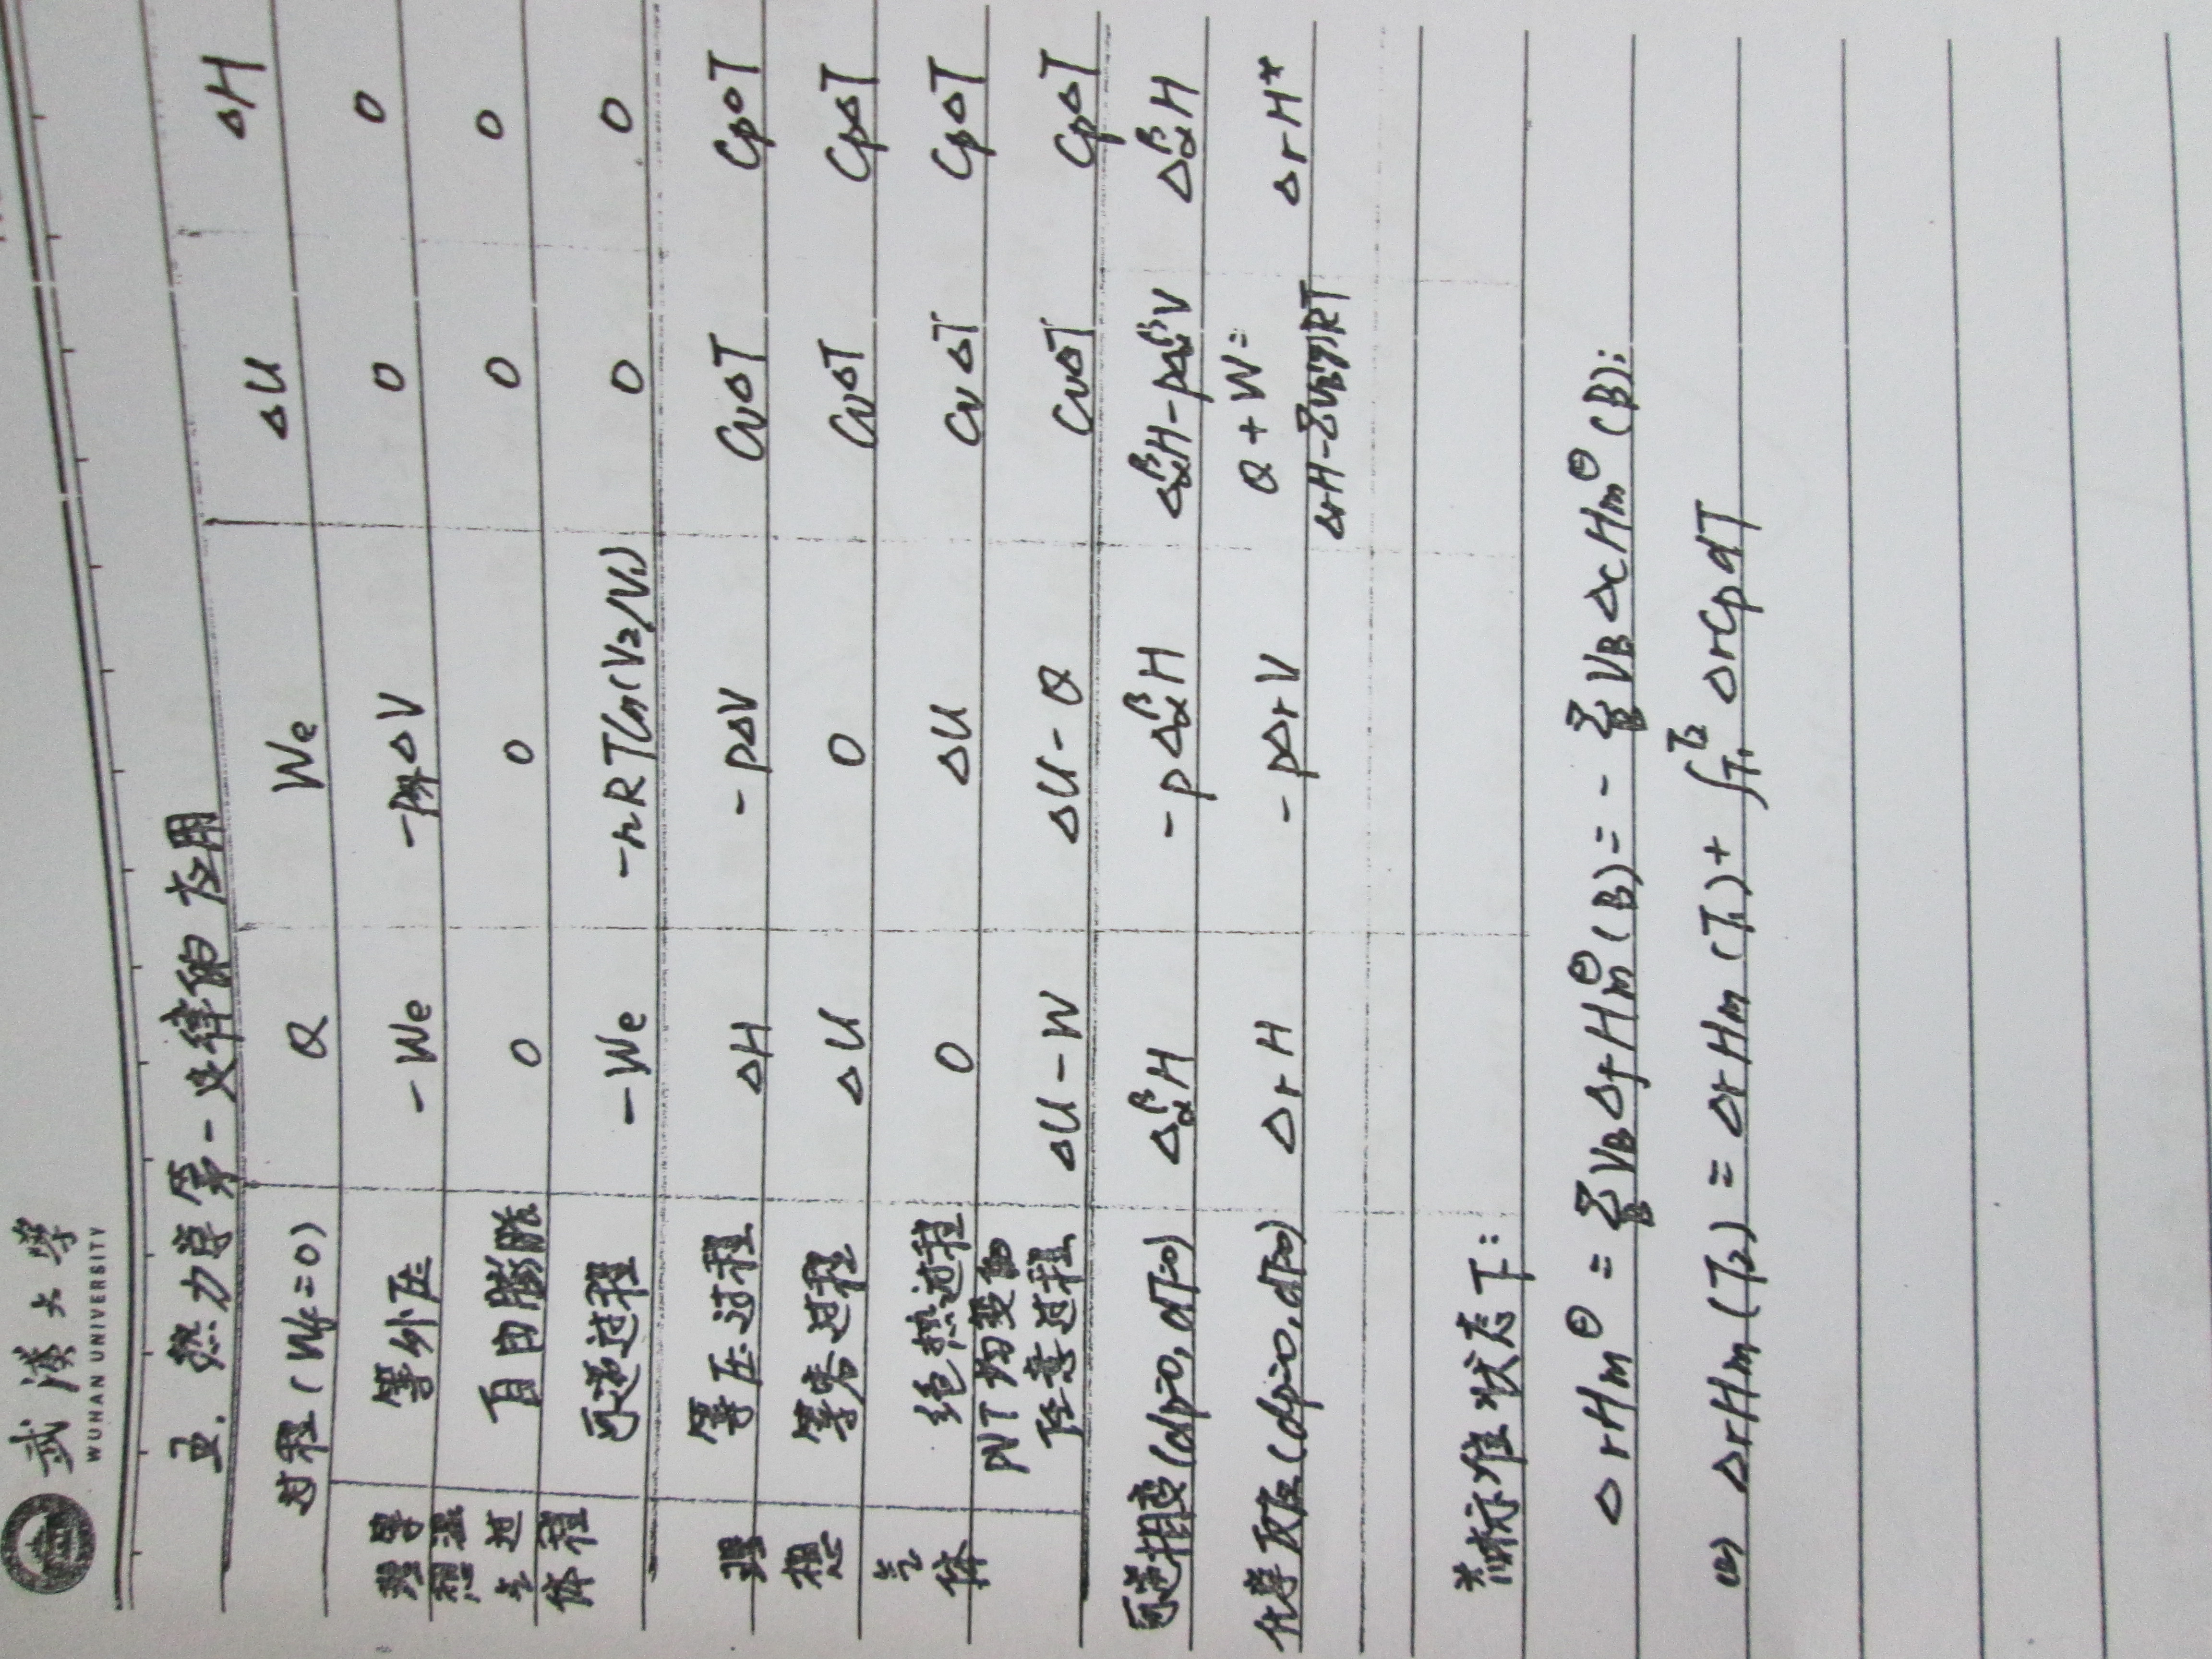 武漢大學
WUHAN UNIVERSITY
五. 热力学第一定律的应用
过程 (Wf=0) Q We ΔU ΔH
理想气体 等温过程
等外压 -We -p外ΔV 0 0
自由膨胀 0 0 0 0
可逆过程 -We -nRTln(V2/V1) 0 0
理想气体
等压过程 ΔH -pΔV CvΔT CpΔT
等容过程 ΔU 0 CvΔT CpΔT
绝热过程 0 ΔU CvΔT CpΔT
PVT均变的
任意过程 ΔU-W ΔU-Q CvΔT CpΔT
可逆相变(dp=0, dT=0) Δαβ H -pΔαβ H Δαβ H-pΔαβ V Δαβ H
化学反应(dp=0, dT=0) ΔrH -pΔrV Q+W= ΔrH*
ΔrH-ΣνB(g)RT
*标准状态下:
ΔrHm⊖ = ΣB νB ΔfHm⊖(B) = - ΣB νB ΔcHm⊖(B);
(2) ΔrHm(T2) = ΔrHm(T1) + ∫T1T2 ΔrCp dT